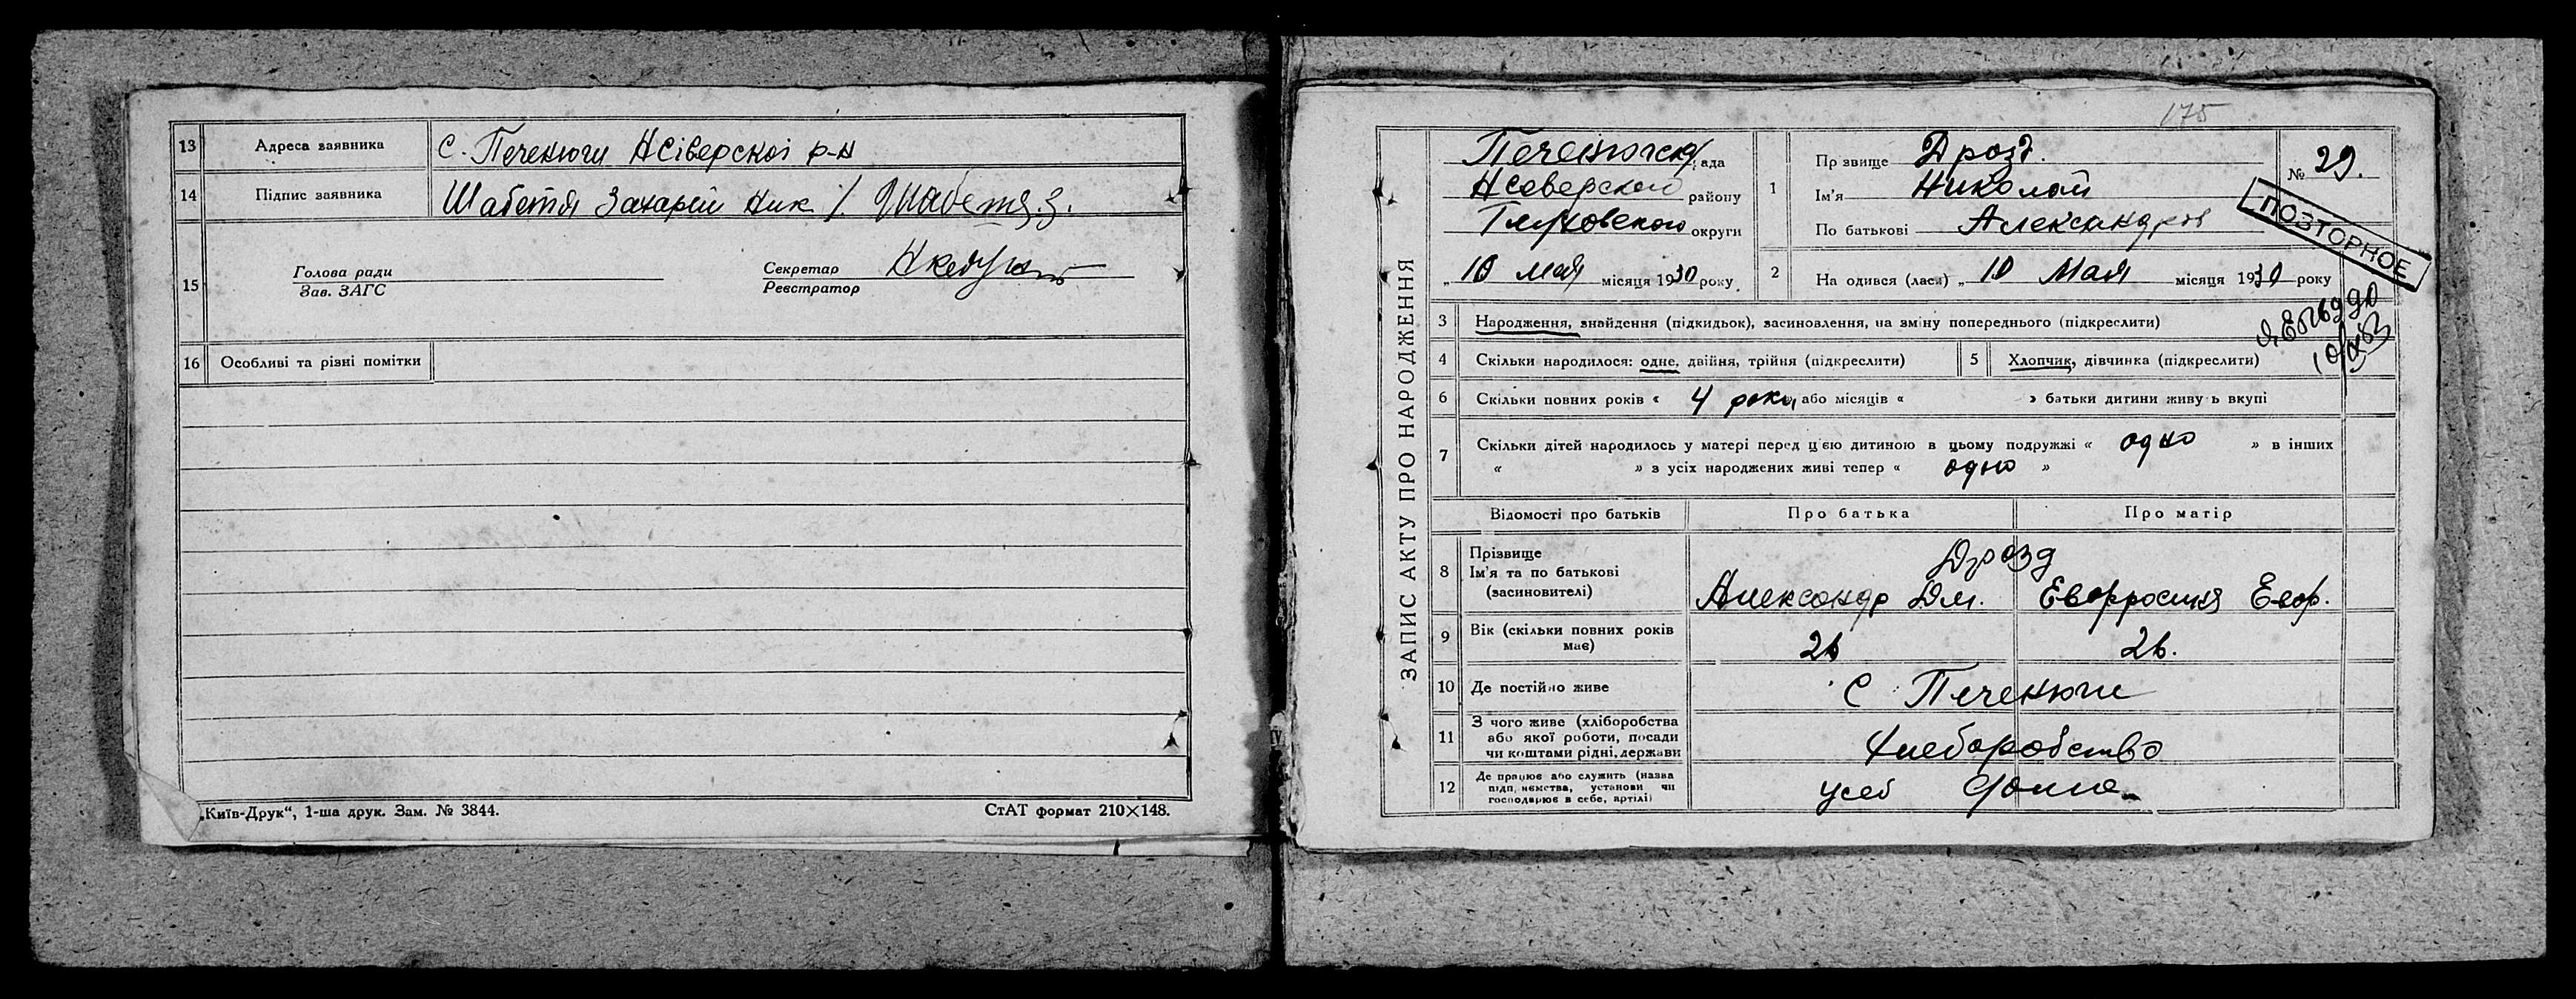 13 Адреса заявника С. Печенюги НСіверскоі р-н
14 Підпис заявника Шабетя Захарей Ник /. Шабетя.З.
15 Голова ради
Зав. ЗАГС
Секретар
Реєстратор
16 Особливі та різні помітки
„Київ-Друк“, 1-ша друк. Зам. № 3844.
СтАТ формат 210×148.
175
ЗАПИС АКТУ ПРО НАРОДЖЕННЯ
Печенюгск рада
НСеверского району
Глуховского округи
„ 10 мая місяця 1930 року
1 Прізвище Дрозд.
Ім'я Николай
По батькові Александров
№ 29.
ПОВТОРНОЕ
2 На одився (лася) „ 10 Мая місяця 1930 року
3 Народження, знайдення (підкидьок), засиновлення, на зміну попереднього (підкреслити)
4 Скільки народилося: одне, двійня, трійня (підкреслити)
5 Хлопчик, дівчинка (підкреслити)
6 Скільки повних років « 4 роки або місяців « » батьки дитини живу ь вкупі
7 Скільки дітей народилось у матері перед цією дитиною в цьому подружжі « одно » в інших
« » з усіх народжених живі тепер « одно »
Відомості про батьків Про батька Про матір
8 Прізвище
Ім'я та по батькові
(засиновителі)
Дрозд
Александр Дм. Евфросиня Евф.
9 Вік (скільки повних років
має)
26 26.
10 Де постійно живе С Печенюги
11 З чого живе (хліборобства
або якої роботи, посади
чи коштами рідні, держави
Хлеборобство
12 Де працює або служить (назва
підп, ємства, установи чи
господарює в себе, артілі)
усеб дома